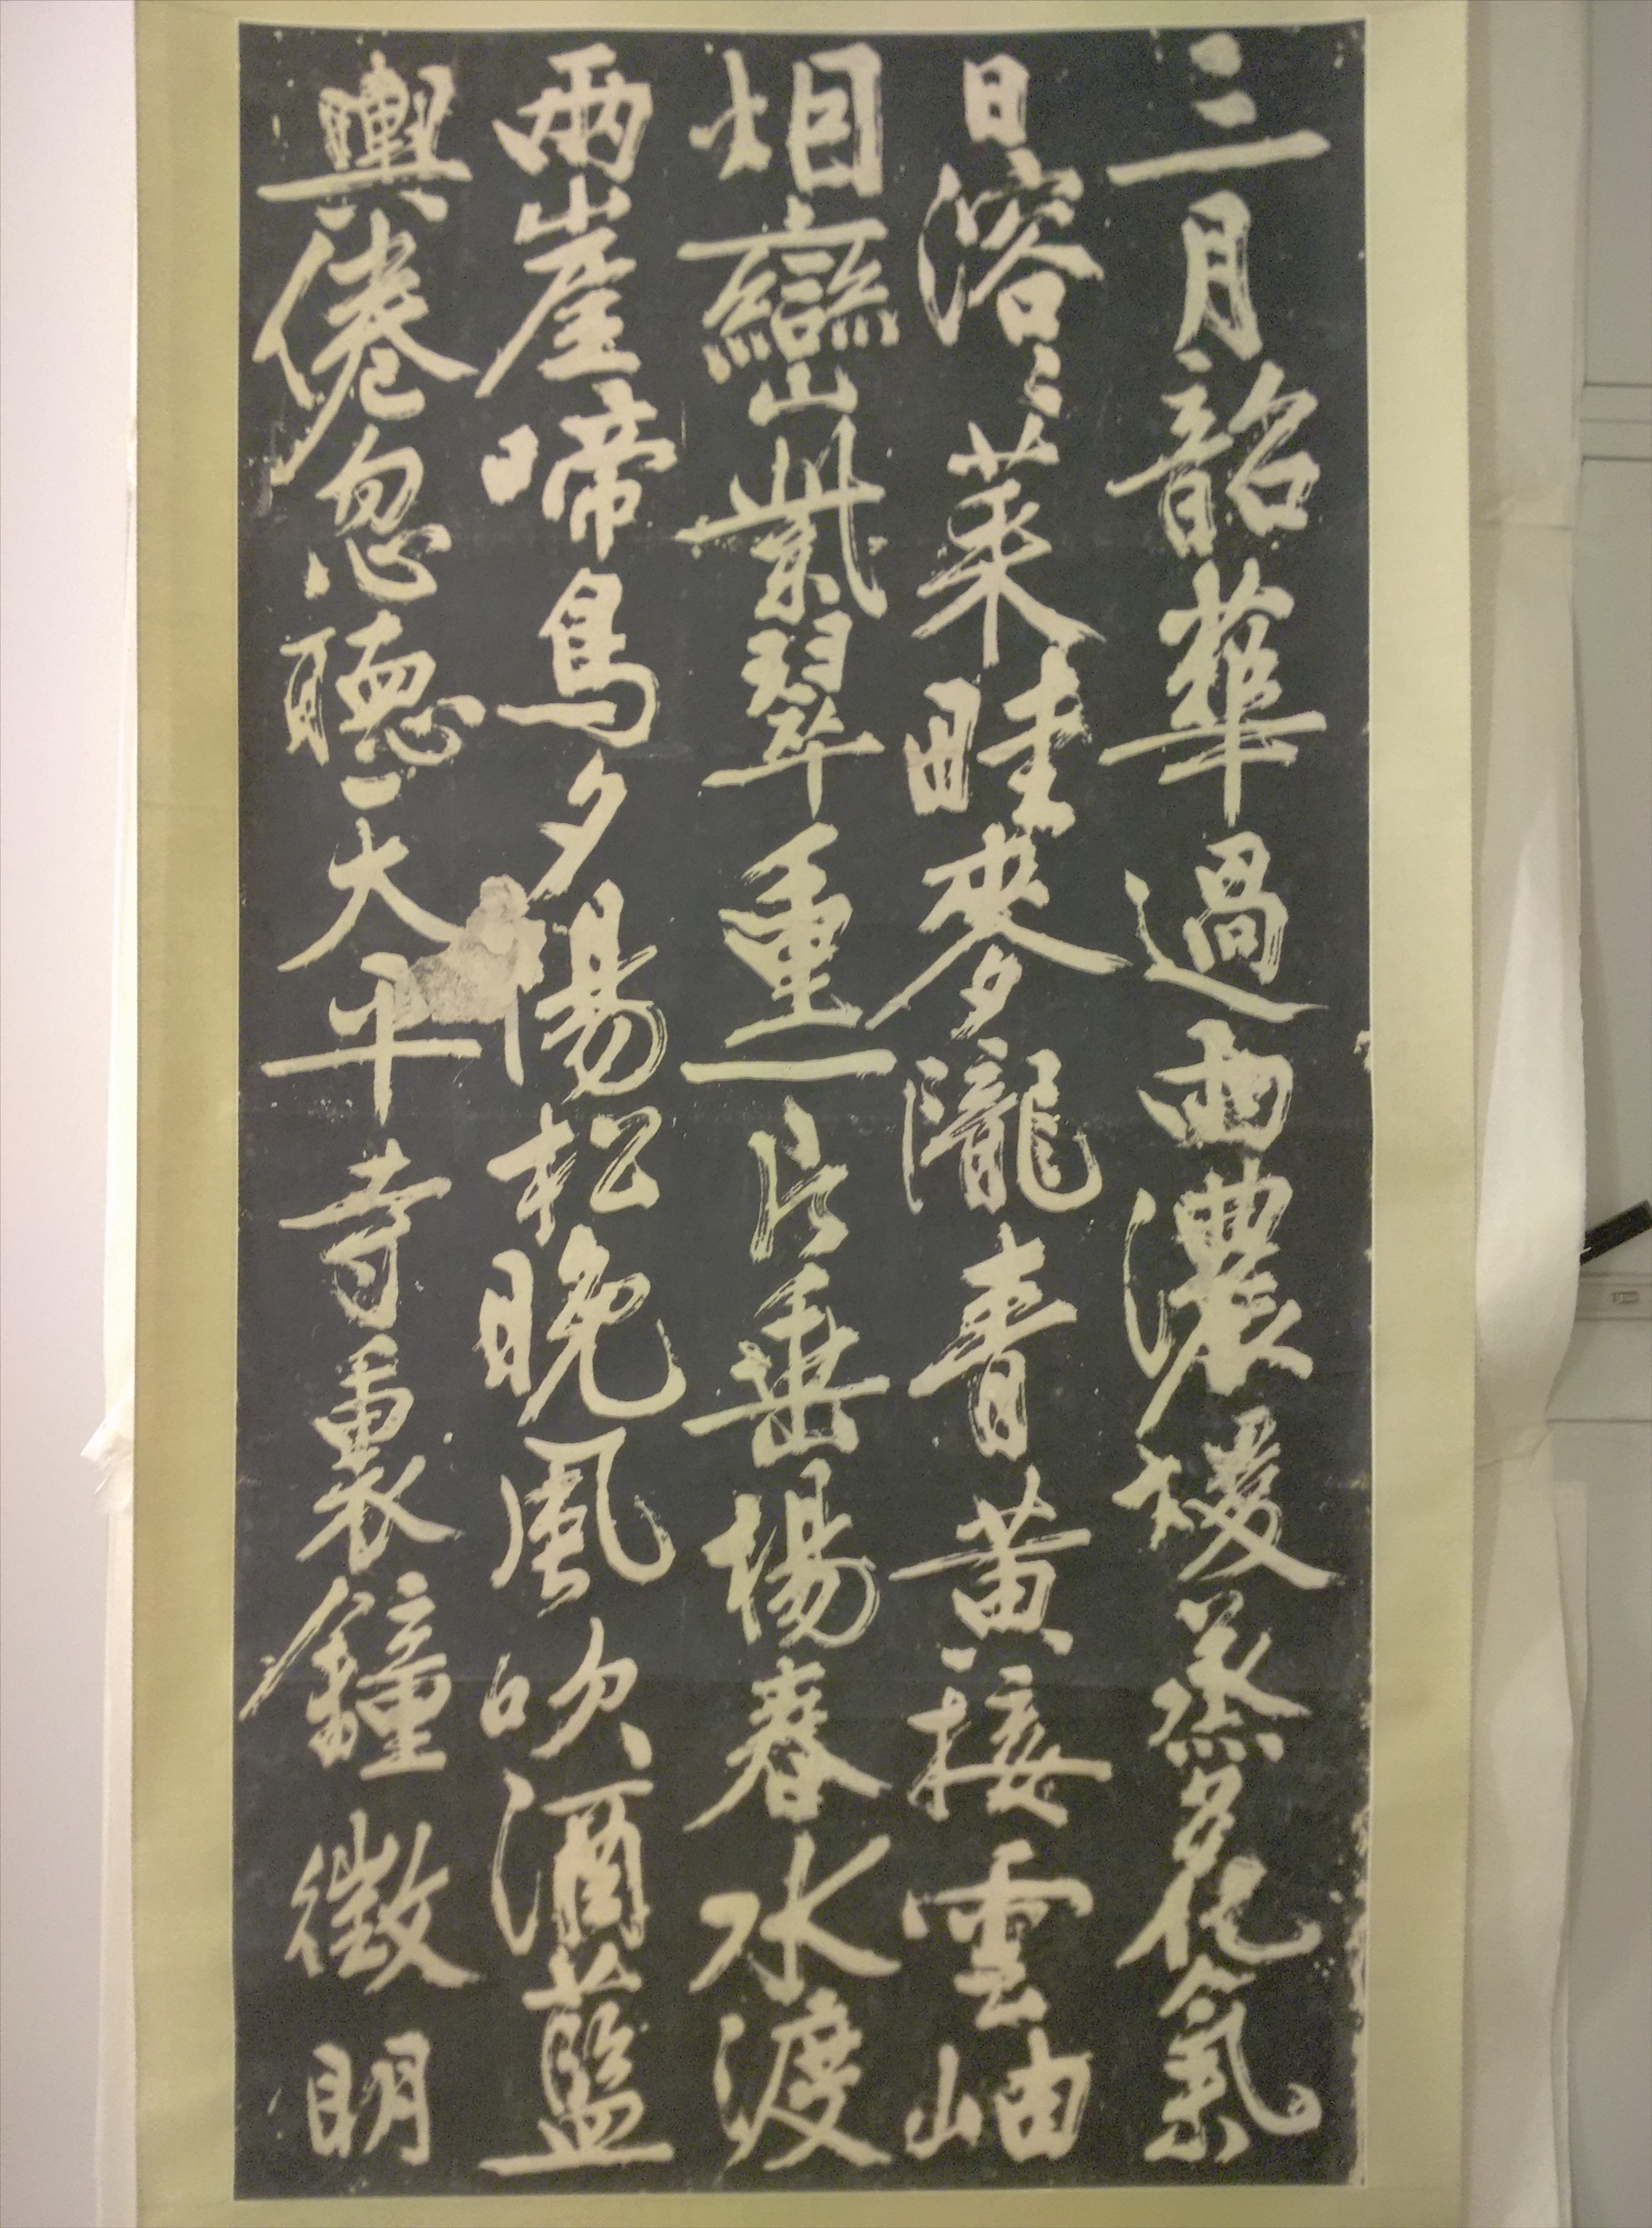 三月韶華過雨濃暖蒸花氣
日溶〻菜畦麥隴青黃接雲岫
烟巒紫翠重一片垂楊春水渡
兩崖啼鳥夕陽松晚風吹酒藍
輿倦忽聽太平寺裏鐘 徵明